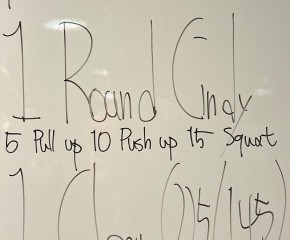 1 Round Cindy
5 Pull up 10 Push up 15 Squat
1 Clean (225/145)